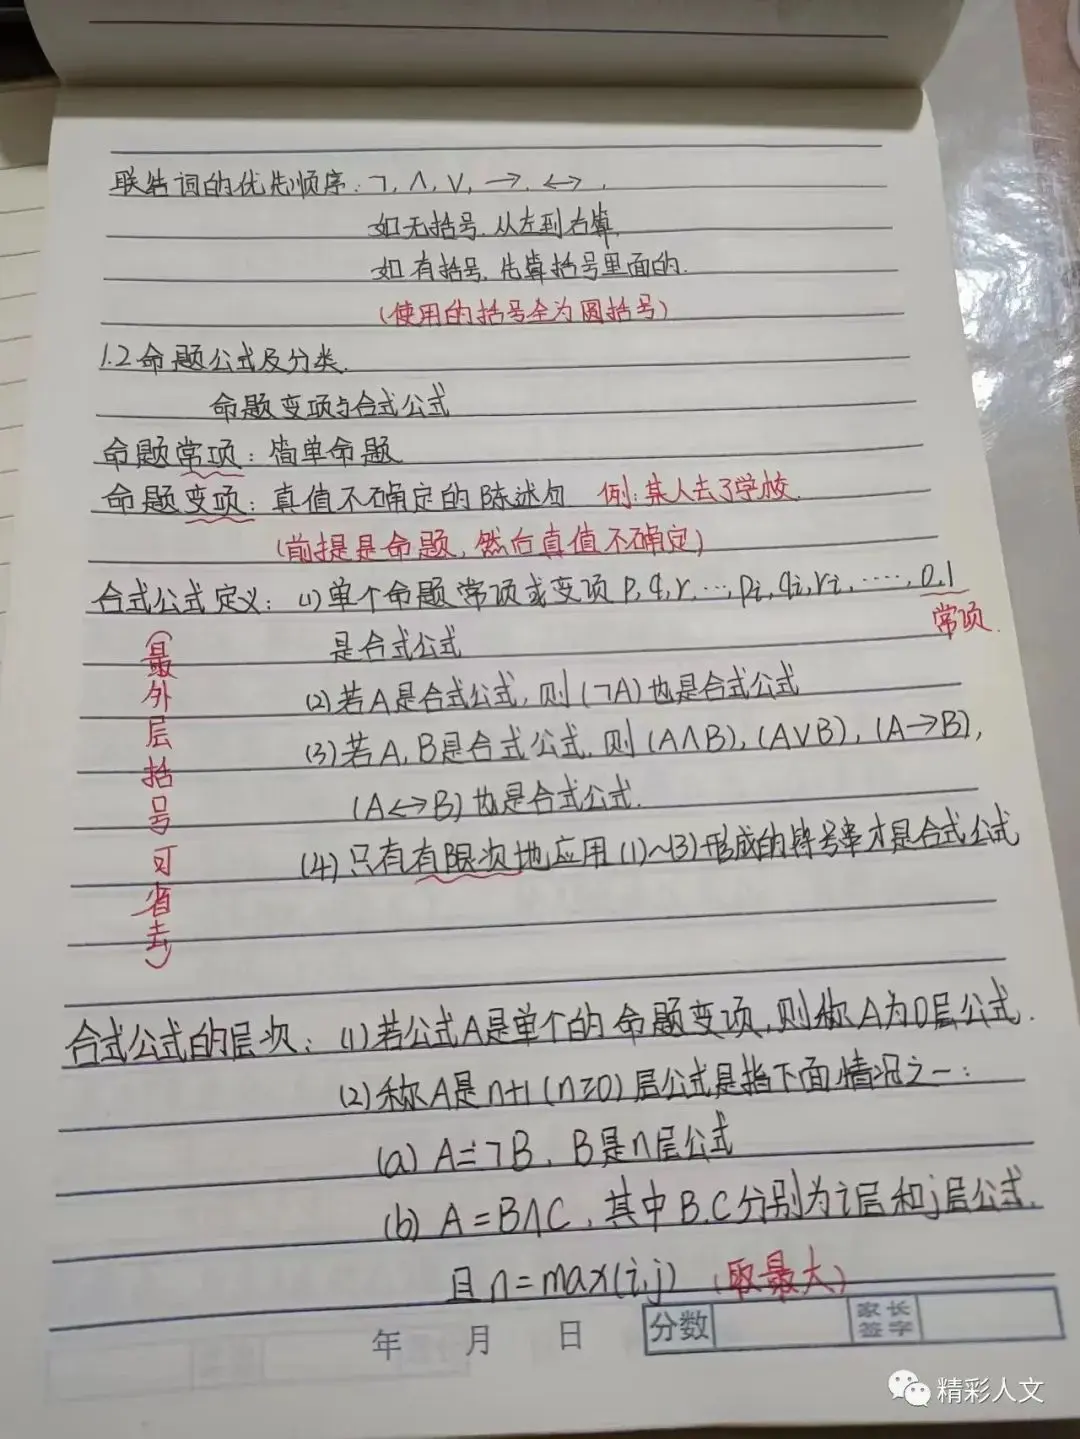 联结词的优先顺序：¬, ∧, ∨, →, ↔.
如无括号，从左到右算，
如有括号，先算括号里面的.
(使用的括号全为圆括号)
1.2 命题公式及分类.
命题变项与合式公式
命题常项：简单命题
命题变项：真值不确定的陈述句 例：某人去了学校.
(前提是命题，然后真值不确定)
合式公式定义：(1) 单个命题常项或变项 p, q, r, …, pi, qi, ri, ……, 0, 1
常项.
是合式公式
(2) 若A是合式公式，则 (¬A) 也是合式公式
(3) 若A, B是合式公式，则 (A∧B), (A∨B), (A→B),
(A↔B) 也是合式公式.
(4) 只有有限次地应用 (1)~(3) 形成的符号串才是合式公式
(最外层括号可省去)
合式公式的层次：(1) 若公式A是单个的命题变项，则称A为0层公式.
(2) 称A是n+1 (n≥0) 层公式是指下面情况之一：
(a) A=¬B, B是n层公式
(b) A=B∧C, 其中B.C分别为i层和j层公式.
且 n=max(i,j) (取最大)
年 月 日 分数 家长签字
精彩人文